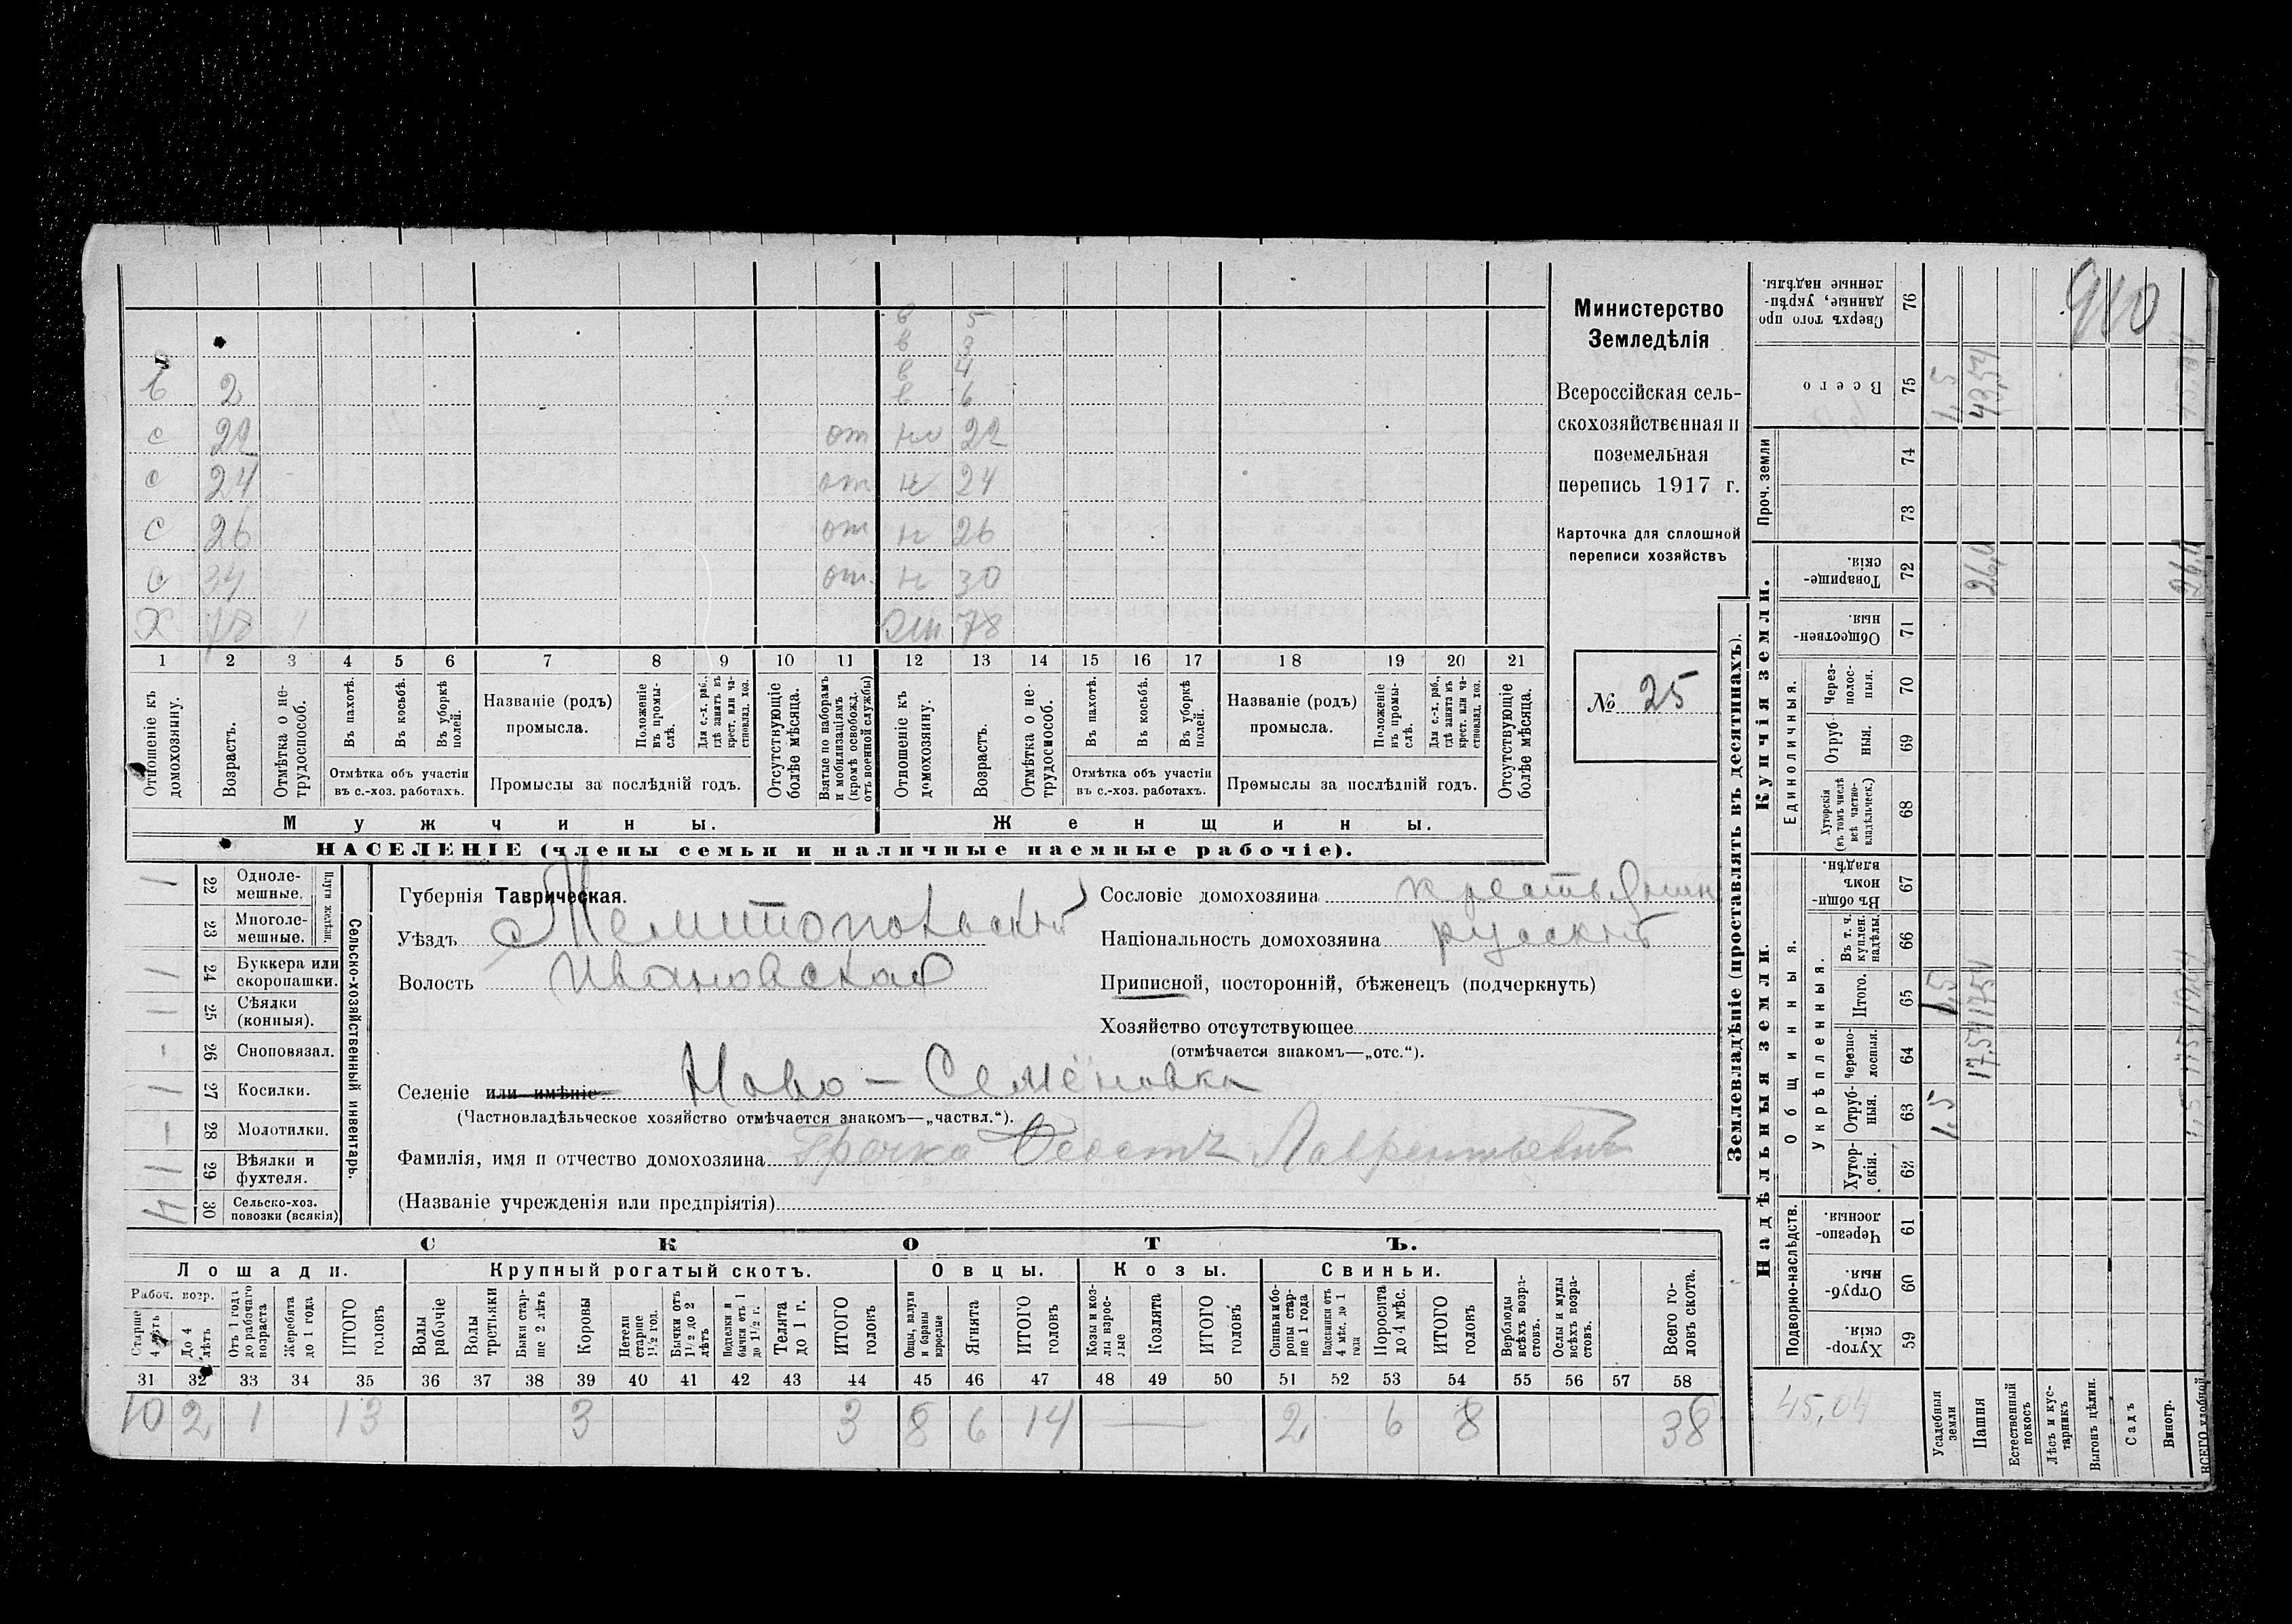 в 5
в 3
в 4
в 2 в 6
с 22 от нв 22
с 24 от н 24
с 26 от н 26
с 34 от. н 30
Х 78 жн 78
1 2 3 4 5 6 7 8 9 10 11 12 13 14 15 16 17 18 19 20 21
Отношеніе къ домохозяину.
Возрастъ.
Отмѣтка о не-трудоспособ.
Въ пахотѣ.
Въ косьбѣ.
Въ уборкѣ полей.
Отмѣтка объ участіи
въ с.-хоз. работахъ.
Названіе (родъ)
промысла.
Положеніе въ промы-слѣ.
Для с.-х. раб., гдѣ занятъ въ крест. или ча-стновлад. хоз.
Промыслы за послѣдній годъ.
Отсутствующіе болѣе мѣсяца.
Взятые по наборамъ и мобилизаціямъ (кромѣ освобожд. отъ военной службы)
Отношеніе къ домохозяину.
Возрастъ.
Отмѣтка о не-трудоспособ.
Въ пахотѣ.
Въ косьбѣ.
Въ уборкѣ полей.
Отмѣтка объ участіи
въ с.-хоз. работахъ.
Названіе (родъ)
промысла.
Положеніе въ промы-слѣ.
Для с.-х. раб., гдѣ занята въ крест. или ча-стновлад. хоз.
Промыслы за послѣдній годъ.
Отсутствующіе болѣе мѣсяца.
Мужчины.
Женщины.
НАСЕЛЕНІЕ (члены семьи и наличные наемные рабочіе).
Министерство
Земледѣлія
Всероссійская сель-
скохозяйственная и
поземельная
перепись 1917 г.
Карточка для сплошной
переписи хозяйствъ
№ 25
1 22 Одноле-мешные.
23 Многоле-мешные.
Плуги желѣзн.
1 24 Буккера или скоропашки.
1 25 Сѣялки (конныя).
- 26 Сноповязал.
1 27 Косилки.
- 28 Молотилки.
1 29 Вѣялки и фухтеля.
4 30 Сельско-хоз. повозки (всякія)
Сельско-хозяйственный инвентарь.
Губернія Таврическая.
Уѣздъ Мелитопольскій
Волость Ивановская
Сословіе домохозяина крестьянин
Національность домохозяина русскій
Приписной, посторонній, бѣженецъ (подчеркнуть)
Хозяйство отсутствующее
(отмѣчается знакомъ—„отс.“).
Селеніе или имѣніе Ново-Семёновка
(Частновладѣльческое хозяйство отмѣчается знакомъ—„частвл.“).
Фамилія, имя и отчество домохозяина Гречка Ѳеостъ Лаврентьевичъ
(Названіе учрежденія или предпріятія)
СКОТЪ.
Лошади. Крупный рогатый скотъ. Овцы. Козы. Свиньи.
Рабоч. возр.
Старше 4 лѣтъ
До 4 лѣтъ
Отъ 1 года до рабочаго возраста
Жеребята до 1 года
ИТОГО головъ
Волы рабочіе
Волы третьяки
Быки стар-ше 2 лѣтъ
Коровы
Нетели старше 1½ год.
Бычки отъ 1½ до 2 лѣтъ
Подтелки и бычки отъ 1 до 1½ г.
Телята до 1 г.
ИТОГО головъ
Овцы, валухи и бараны взрослые
Ягнята
ИТОГО головъ
Козы и коз-лы взрос-лые
Козлята
ИТОГО головъ
Свиньи и бо-ровы стар-ше 1 года
Подсвинки отъ 4 мѣс. до 1 года
Поросята до 4 мѣс.
ИТОГО головъ
Верблюды всѣхъ возра-стовъ.
Ослы и мулы всѣхъ возра-стовъ.
Всего го-ловъ скота.
31 32 33 34 35 36 37 38 39 40 41 42 43 44 45 46 47 48 49 50 51 52 53 54 55 56 57 58
10 2 1 13 3 3 8 6 14 — 2 6 8 38
Землевладѣніе (проставлять въ десятинахъ).
Надѣльныя земли.
Купчія земли.
Проч. земли
Подворно-наслѣдств.
Общинныя.
Укрѣпленныя.
Единоличныя.
Сверхъ того про-данные, укрѣп-ленные надѣлы. 76
Всего 75 1,5 43,54
74
73
Товарище-скія. 72 26,0 26,0
Обществен-ныя. 71
Через-полос-ныя. 70
Отруб-ныя. 69
Хуторскія (въ томъ числѣ всѣ частно-владѣльческ.) 68
Въ общин-номъ владѣн. 67
Въ т. ч. куплен. надѣлы. 66
Итого. 65 1,5 17,54
Черезпо-лосныя. 64 17,54
Отруб-ныя. 63 1,5
Хутор-скія. 62
Черезпо-лосныя. 61
Отруб-ныя. 60
Хутор-скія. 59
45,04
Усадебныя земли
Пашня
Естественный покосъ
Лѣсъ и кус-тарникъ
Выгонъ цѣлин.
Садъ
Виногр.
ВСЕГО удобной
910